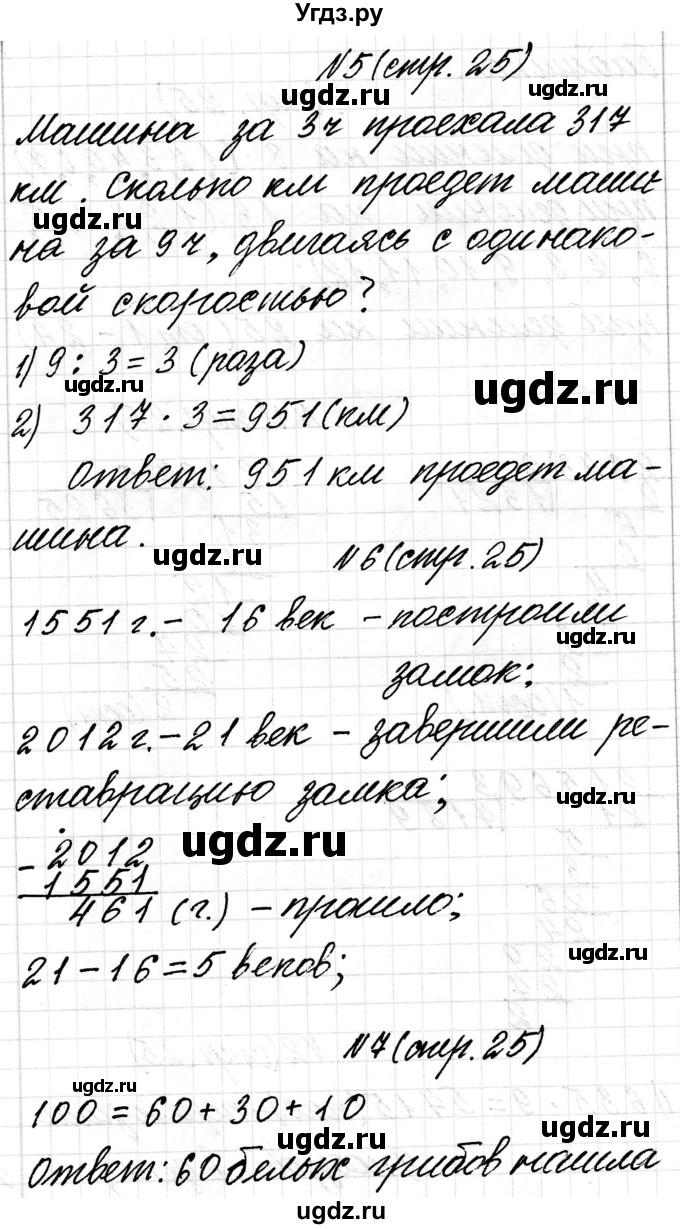 Угдз.ру
N5 (стр. 25)
ugdz.ru ugdz.ru
Машина за 3ч проехала 317
км. Сколько км проедет маши-
ugdz.ru ugdz.ru
на за 9ч, двигаясь с одинако-
вой скоростью?
1) 9 : 3 = 3 (раза)
ugdz.ru ugdz.ru
2) 317 · 3 = 951 (км)
Ответ: 951 км проедет ма-
шина. ugdz.ru
N6 (стр. 25)
1551 г. – 16 век – построили
ugdz.ru
замок;
2012 г. – 21 век – завершили ре-
ставрацию замка; ugdz.ru
- 2012 ugdz.ru
1551
461 (г.) – прошло;
21 – 16 = 5 веков; ugdz.ru
N7 (стр. 25)
ugdz.ru
100 = 60 + 30 + 10
ugdz.ru ugdz.ru
Ответ: 60 белых грибов нашла
ugdz.ru